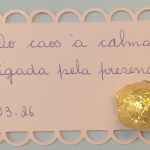 Do caos à calma
igada pela presenç
03.26